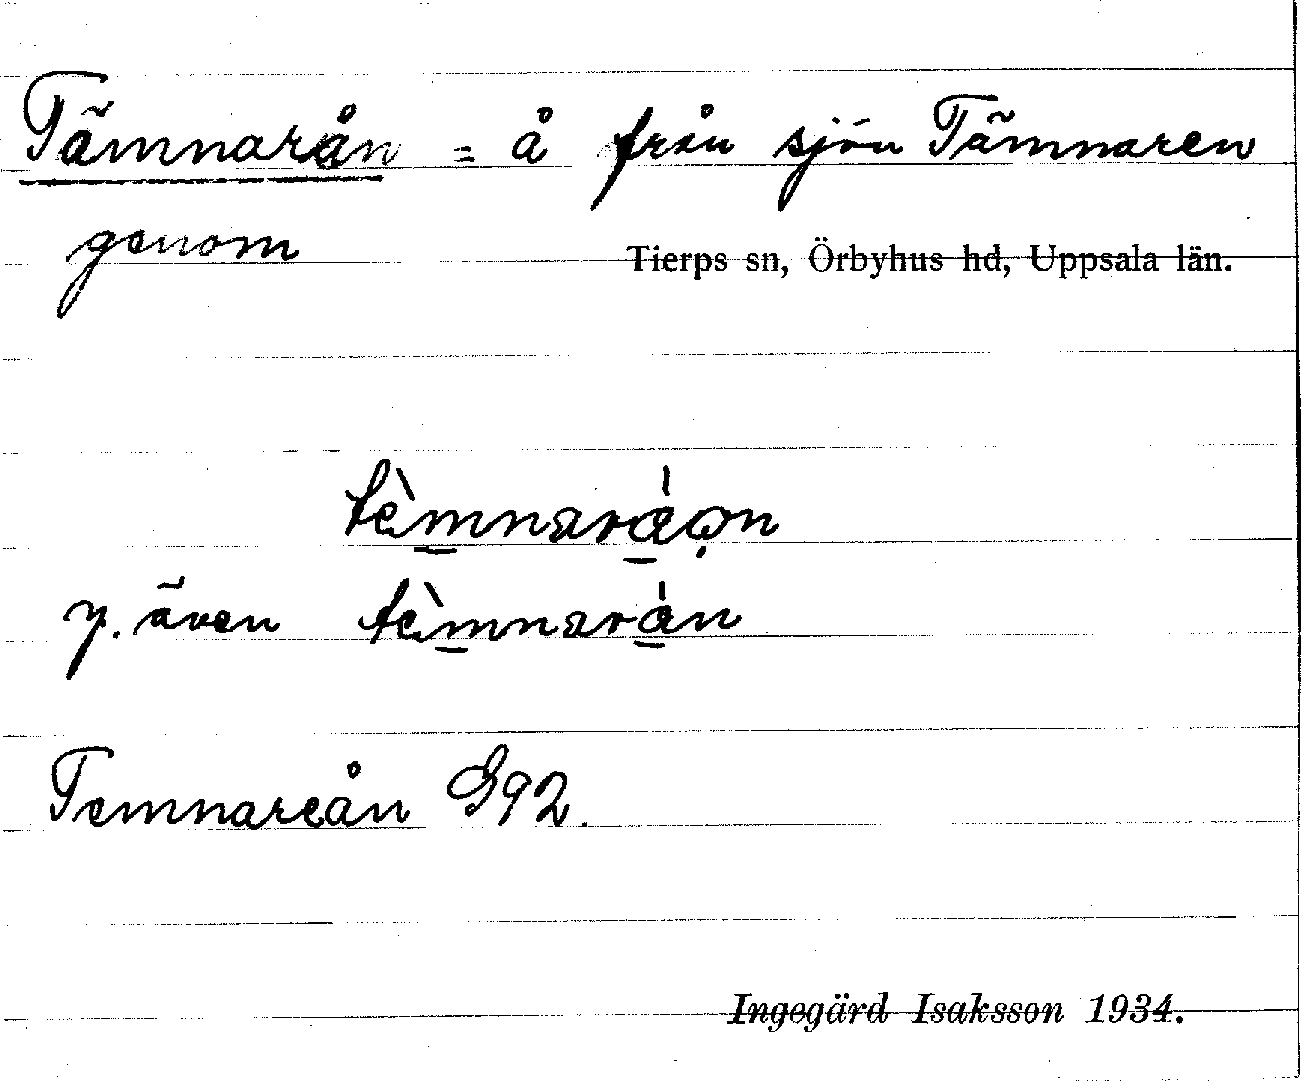 Tämnarån = å från sjön Tämnaren
genom Tierps sn, Örbyhus hd, Uppsala län.
y. även
Temnareån G92.
Ingegärd Isaksson 1934.